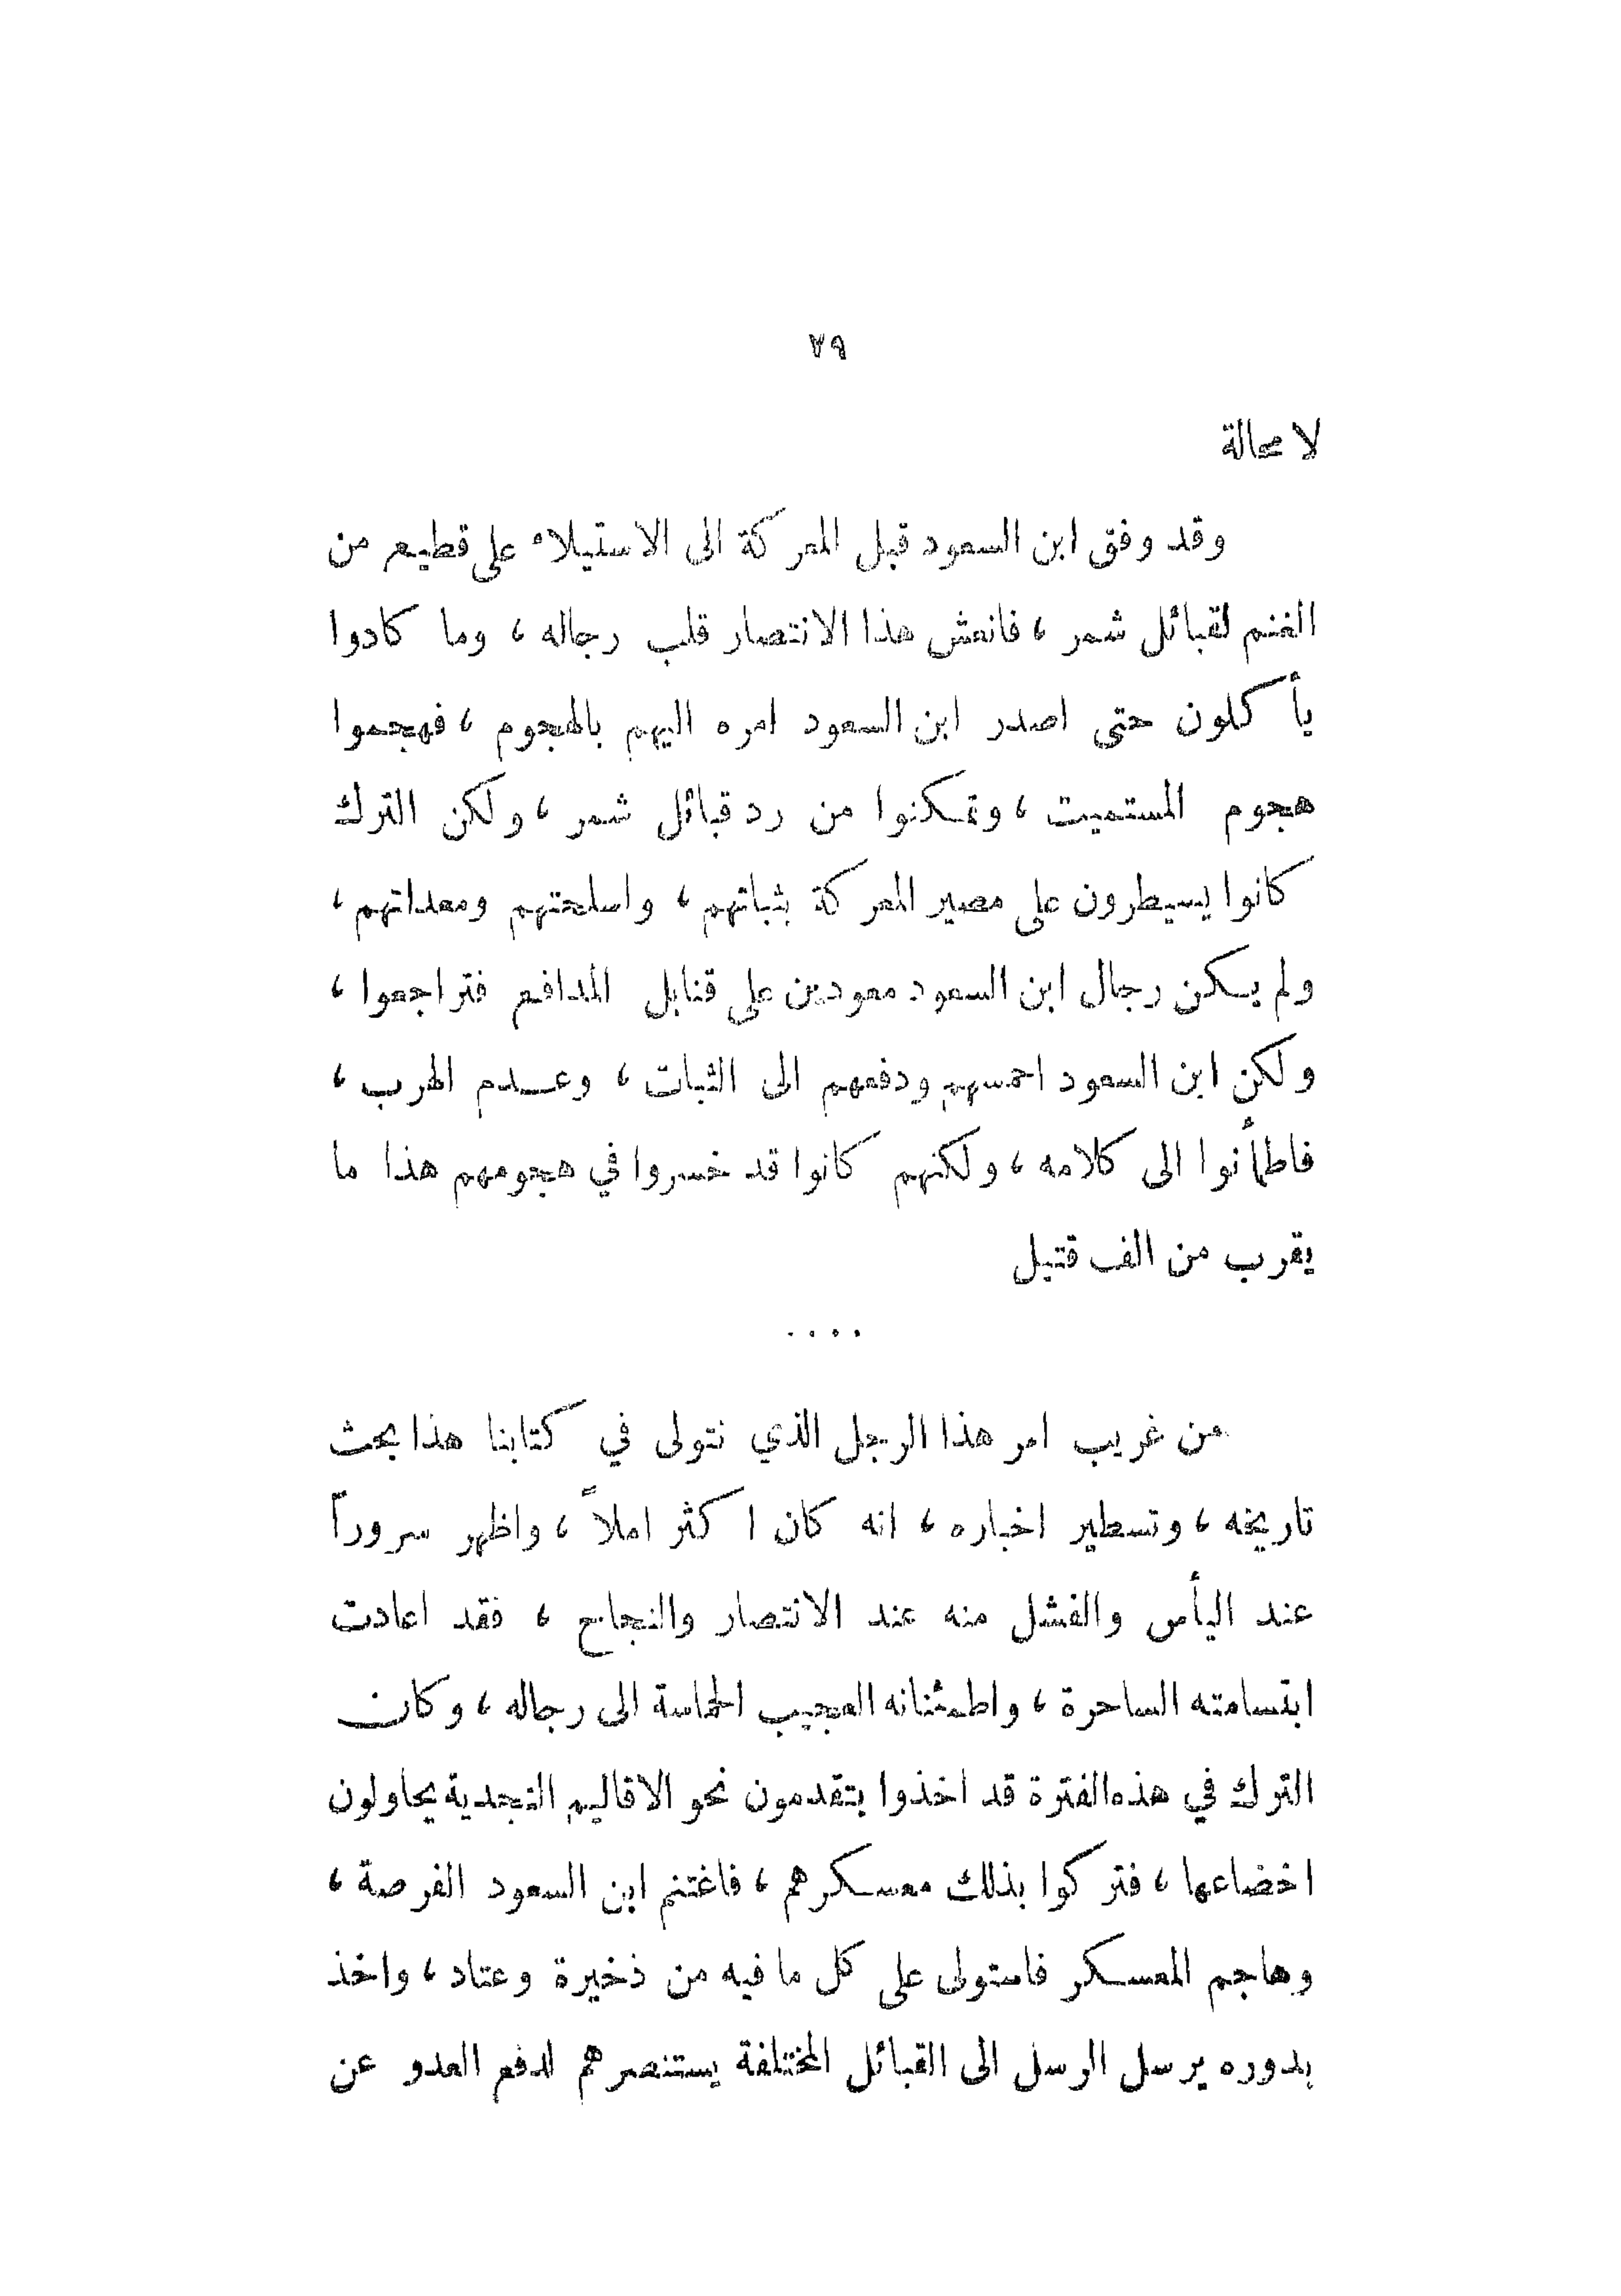 ٣٩
لا محالة
وقد وفق ابن السعود قبل المعركة الى الاستيلاء على قطيع من
الغنم لقبائل شمر ، فانعش هذا الانتصار قلب رجاله ، وما كادوا
يأكلون حتى اصدر ابن السعود امره اليهم بالهجوم ، فهجموا
هجوم المستميت ، وتمكنوا من رد قبائل شمر ، ولكن الترك
كانوا يسيطرون على مصير المعركة بثباتهم ، واسلحتهم ومعداتهم ،
ولم يكن رجال ابن السعود معودين على قنابل المدافع فتراجعوا ،
ولكن ابن السعود احمسهم ودفعهم الى الثبات ، وعدم الهرب ،
فاطمأنوا الى كلامه ، ولكنهم كانوا قد خسروا في هجومهم هذا ما
يقرب من الف قتيل
. . . .
من غريب امر هذا الرجل الذي نتولى في كتابنا هذا بحث
تاريخه ، وتسطير اخباره ، انه كان اكثر املاً ، واظهر سروراً
عند اليأس والفشل منه عند الانتصار والنجاح ، فقد اعادت
ابتسامته الساحرة ، واطمئنانه العجيب الحماسة الى رجاله ، وكان
الترك في هذه الفترة قد اخذوا يتقدمون نحو الاقاليم النجدية يحاولون
اخضاعها ، فتركوا بذلك معسكرهم ، فاغتنم ابن السعود الفرصة ،
وهاجم المعسكر فاستولى على كل ما فيه من ذخيرة وعتاد ، واخذ
بدوره يرسل الرسل الى القبائل المختلفة يستنصرهم لدفع العدو عن